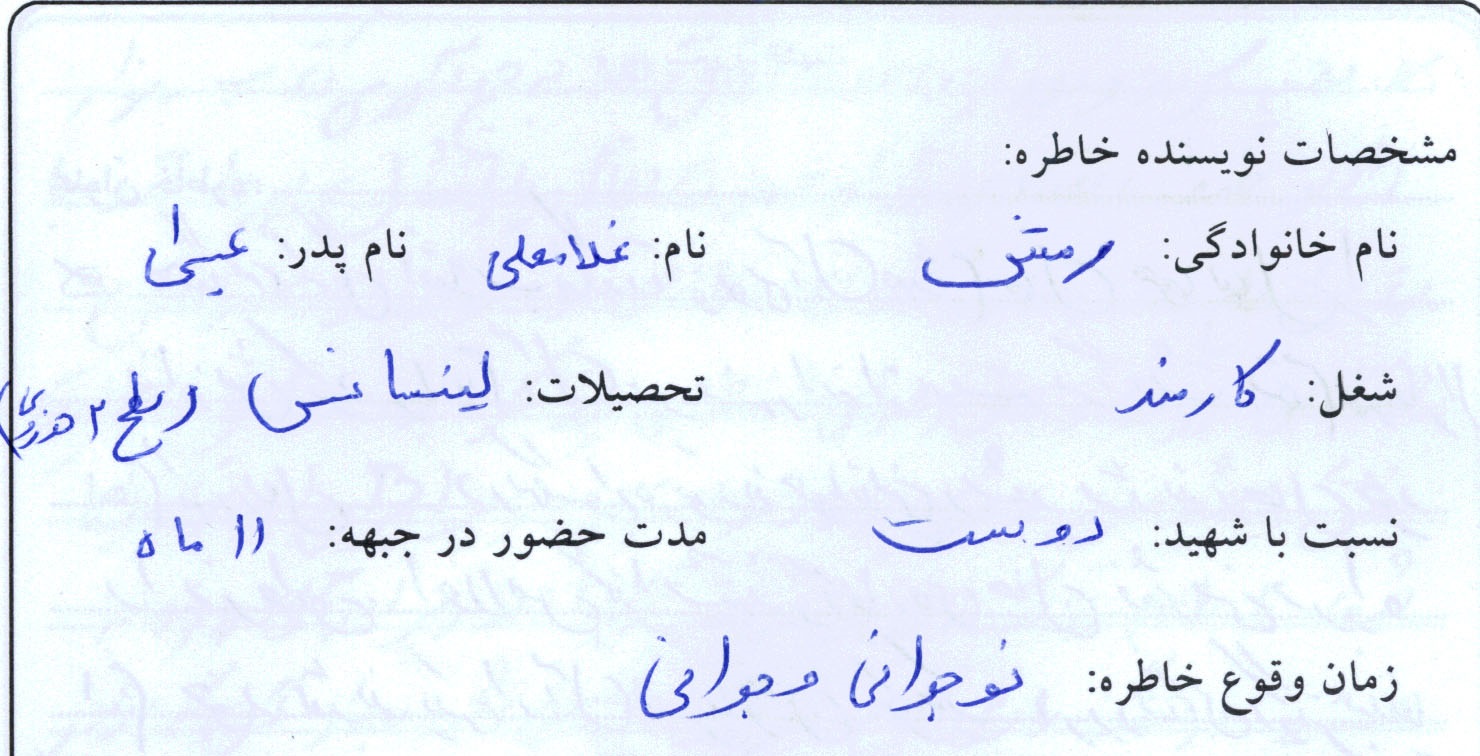 مشخصات نویسنده خاطره:
نام خانوادگی: نام: غلامعلی نام پدر: عیسی
شغل: کارمند تحصیلات: لیسانس (سطح ۲ حوزوی)
نسبت با شهید: دوست مدت حضور در جبهه: ۱۱ ماه
زمان وقوع خاطره: نوجوانی و جوانی